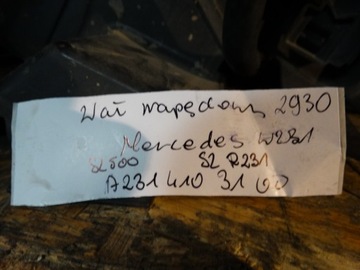 Wał napędowy 2930
Mercedes W231
SL500 SL R231
A231 410 31 00